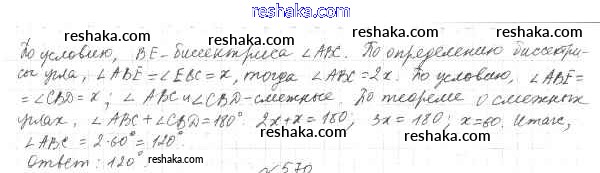 reshaka.com
По условию, BE-биссектриса ∠ABC. По определению биссектри-
сы угла, ∠ABE=∠EBC=x, тогда ∠ABC=2x. По условию, ∠ABE=
=∠CBD=x; ∠ABC и ∠CBD-смежные. По теореме о смежных
углах, ∠ABC+∠CBD=180° 2x+x=180; 3x=180; x=60. Итак,
∠ABC = 2·60°=120°.
Ответ: 120°.
№570
reshaka.com reshaka.com reshaka.com
reshaka.com reshaka.com
reshaka.com reshaka.com reshaka.com
reshaka.com